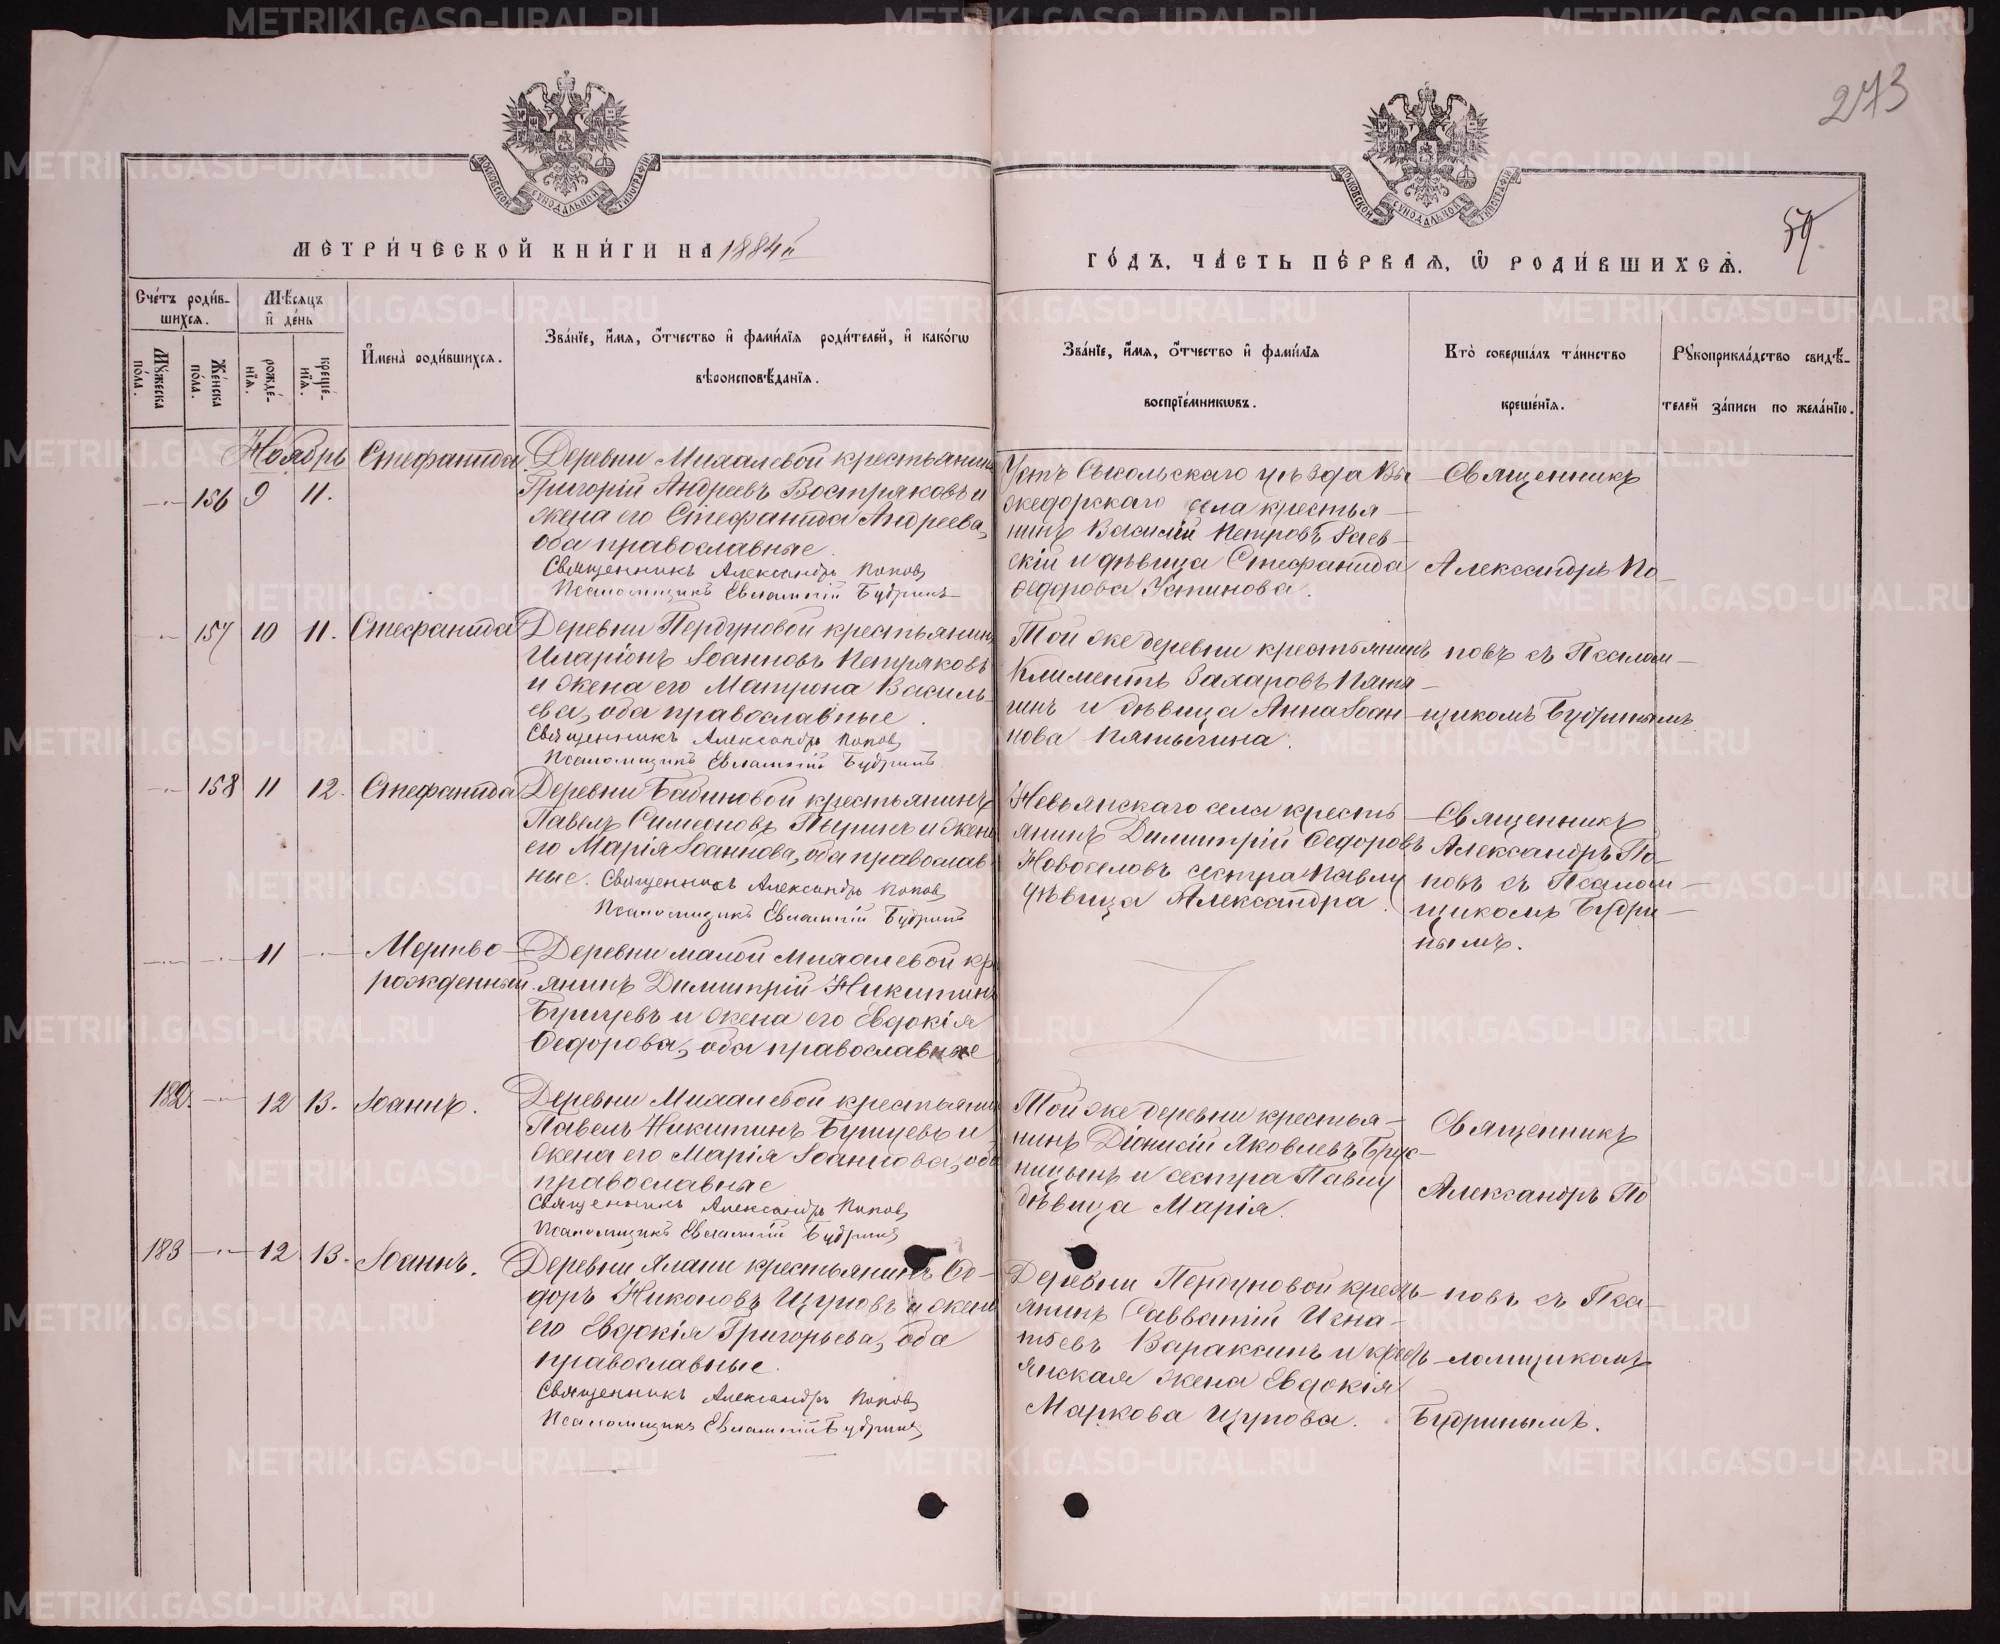 273
МОСКОВСКОЙ СѴНОДАЛЬНОЙ ТИПОГРАФІИ
МОСКОВСКОЙ СѴНОДАЛЬНОЙ ТИПОГРАФІИ
МЕТРИ́ЧЕСКОЙ КНИ́ГИ НА 1884й
ГО́ДЪ, ЧА́СТЬ ПЕ́РВАЯ, Ѽ РОДИ́ВШИХСЯ.
Сче́тъ роди́в-
шихся.
Мꙋ́жеска по́ла.
Же́нска по́ла.
Мѣ́сяцъ
и҆ де́нь
рожде́-
нїя.
креще́-
нїя.
И҆мена̀ родившихся.
Зва́нїе, и҆́мя, ѻ҆́тчество и҆ фами́лїя роди́телей, и҆ како́гѡ
вѣроисповѣ́данїя.
Зва́нїе, и҆́мя, ѻ҆́тчество и҆ фами́лїя
воспрїе́мникѡвъ.
Кто̀ соверша́лъ та́инство
креще́нїя.
Рꙋкоприкла́дство свидѣ́-
телей за́писи по жела́нїю.
Ноябрь
156 9 11. Стефанида
Деревни Михалевой крестьянинъ
Григорій Андреевъ Востряковъ и
жена его Стефанида Андреева,
оба православные.
Священникъ Александръ Поповъ
Псаломщикъ Евлампій Будринъ
Устъ Сысольскаго уѣзда
жедорскаго села крестья-
нинъ Василій Петровъ Раев-
скій и дѣвица Стефанида
Ѳедорова Устинова.
Священникъ
Александръ По-
157 10 11. Стефанида
Деревни Пердуновой крестьянинъ
Иларіонъ Іоанновъ Петряковъ
и жена его Матрона Василь-
ева, оба православные.
Священникъ Александръ Поповъ
Псаломщикъ Евлампій Будринъ
Той же деревни крестьянинъ
Климентъ Захаровъ Пяты-
гинъ и дѣвица Анна Іоан-
нова Пятыгина.
повъ съ Псалом-
щикомъ Будринымъ
158 11 12. Стефанида
Деревни Бабиновой крестьянинъ
Павелъ Симеоновъ Пыринъ и жена
его Марія Іоаннова, оба православ
ные. Священникъ Александръ Поповъ
Псаломщикъ Евлампій Будринъ
Невьянскаго села кресть
янинъ Димитрій Ѳедоровъ
Новоселовъ сестра Павлу
дѣвица Александра.
Священникъ
Александръ По-
повъ съ Псалом-
щикомъ Будри-
нымъ.
11 Мертво-
рожденный.
Деревни малой Михалевой кр
янинъ Димитрій Никитинъ
Бунцевъ и жена его Евдокія
Ѳедорова, оба православные
182. 12 13. Іоаннъ.
Деревни Михалевой крестьянинъ
Павелъ Никитинъ Бунцевъ и
жена его Марія Іоаннова, оба
православные
Священникъ Александръ Поповъ
Псаломщикъ Евлампій Будринъ
Той же деревни крестья-
нинъ Діонисій Яковлевъ Брус-
ницынъ и сестра Павлу
дѣвица Марія.
Священникъ
Александръ По
183 12 13. Іоаннъ.
Деревни Ялани крестьянинъ Ѳе-
доръ Никоновъ Щуповъ и жена
его Евдокія Григорьева, оба
православные.
Священникъ Александръ Поповъ
Псаломщикъ Евлампій Будринъ
Деревни Пердуновой кресть-
янинъ Савватій Игна-
тьевъ Вараксинъ и кресть
янская жена Евдокія
Маркова Щупова.
повъ съ Пса-
ломщикомъ
Будринымъ.
METRIKI.GASO-URAL.RU